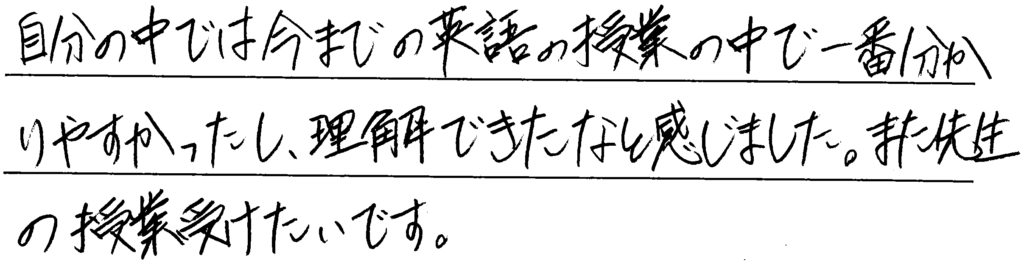 自分の中では今までの英語の授業の中で一番分か
りやすかったし、理解できたなと感じました。また先生
の授業受けたいです。